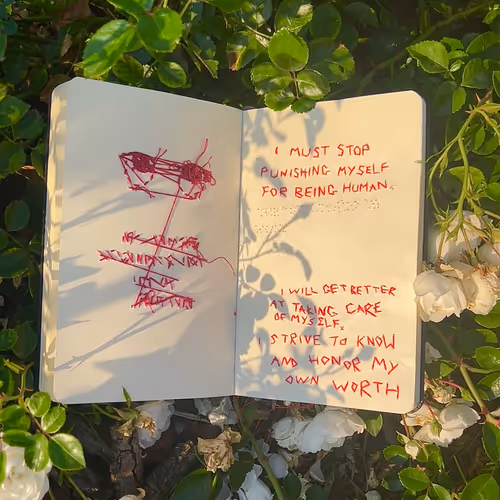 I MUST STOP
PUNISHING MYSELF
FOR BEING HUMAN.
I WILL GET BETTER
AT TAKING CARE
OF MYSELF.
I STRIVE TO KNOW
AND HONOR MY
OWN WORTH